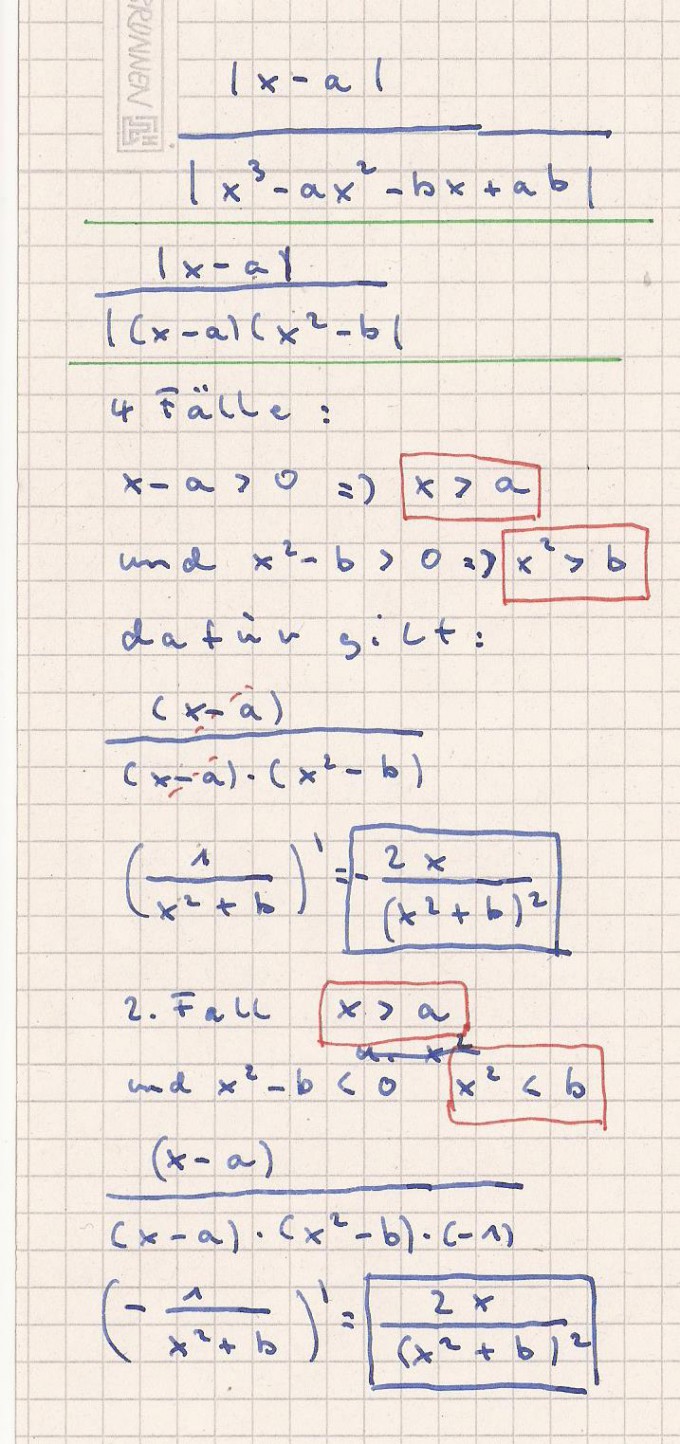 BRUNNEN
|x-a|
|x³-ax²-bx+ab|
|x-a|
|(x-a)(x²-b|
4 Fälle:
x-a > 0 => x > a
und x²-b > 0 => x² > b
dafür gilt:
(x-a)
(x-a)·(x²-b)
(1/(x²+b))' = -2x/(x²+b)²
2. Fall x > a
u. x²
und x²-b < 0 x² < b
(x-a)
(x-a)·(x²-b)·(-1)
(-1/(x²+b))' = 2x/(x²+b)²